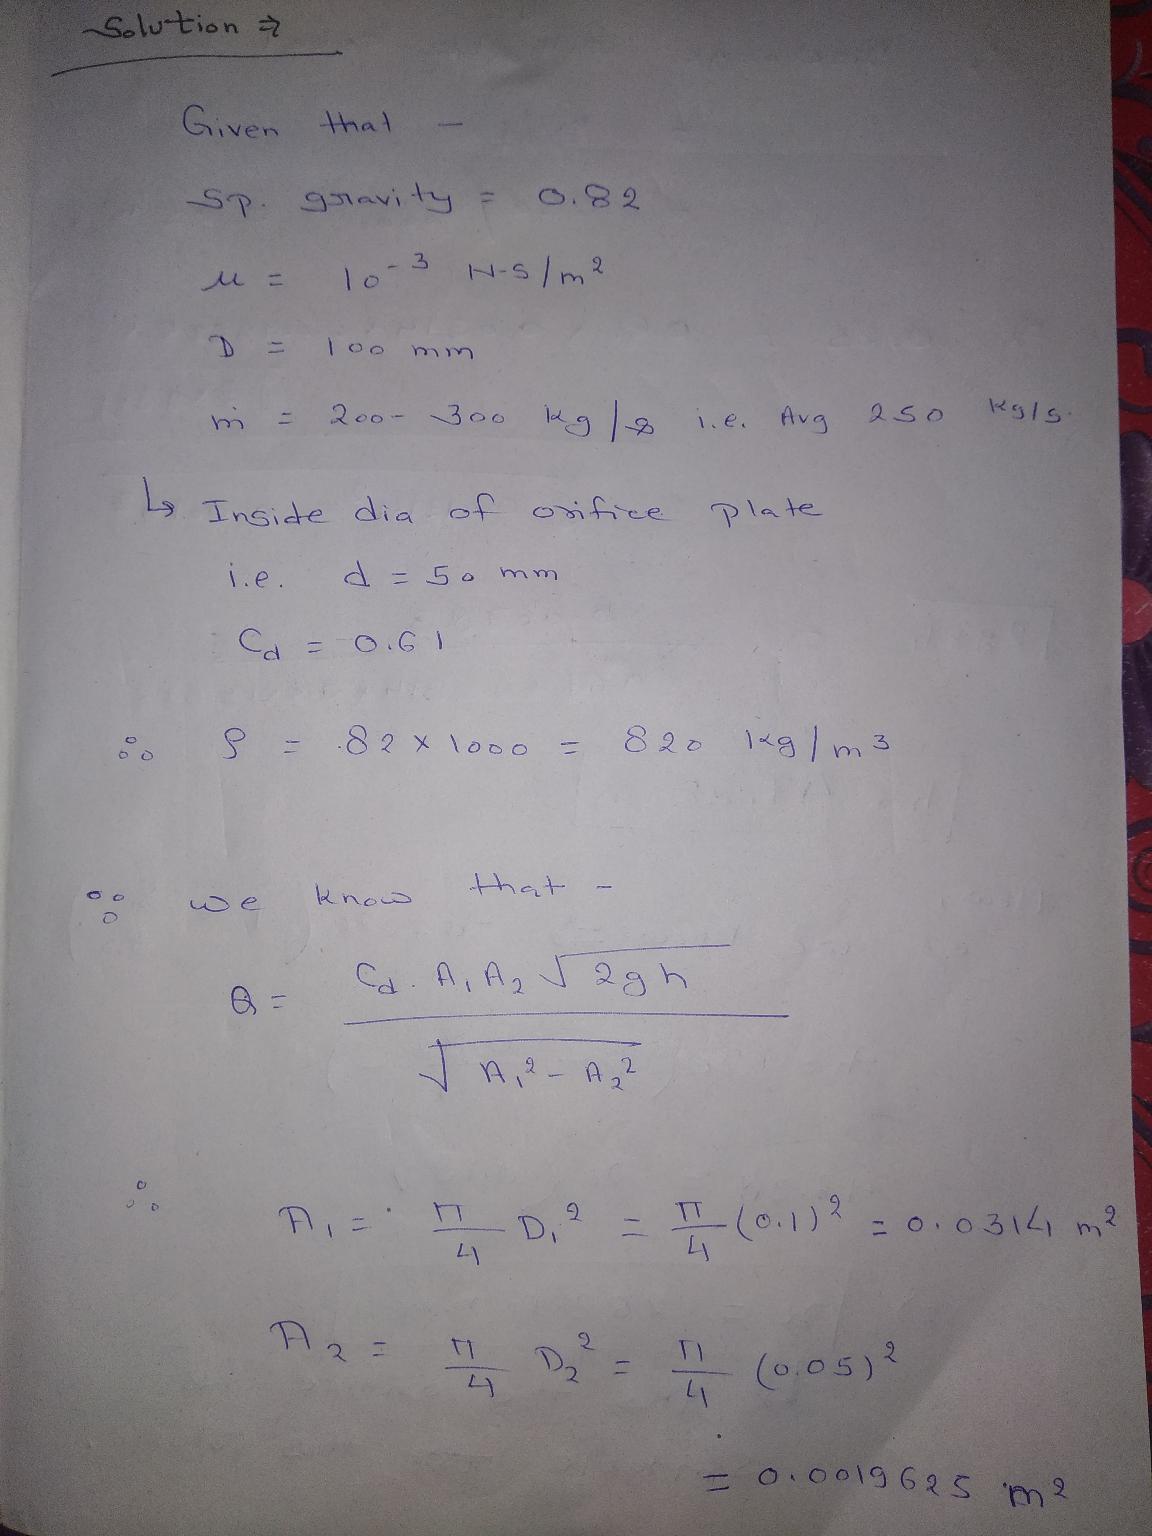 Solution ⇒
Given that -
Sp. gravity = 0.82
μ = 10⁻³ N-S/m²
D = 100 mm
ṁ = 200 - 300 kg/s i.e. Avg 250 kg/s.
↳ Inside dia of orifice plate
i.e. d = 50 mm
Cd = 0.61
∴ ρ = .82 × 1000 = 820 kg/m³
∵ we know that -
Q = Cd. A₁ A₂ √2gh / √A₁² - A₂²
∴ A₁ = π/4 D₁² = π/4 (0.1)² = 0.0314 m²
A₂ = π/4 D₂² = π/4 (0.05)²
= 0.0019625 m²